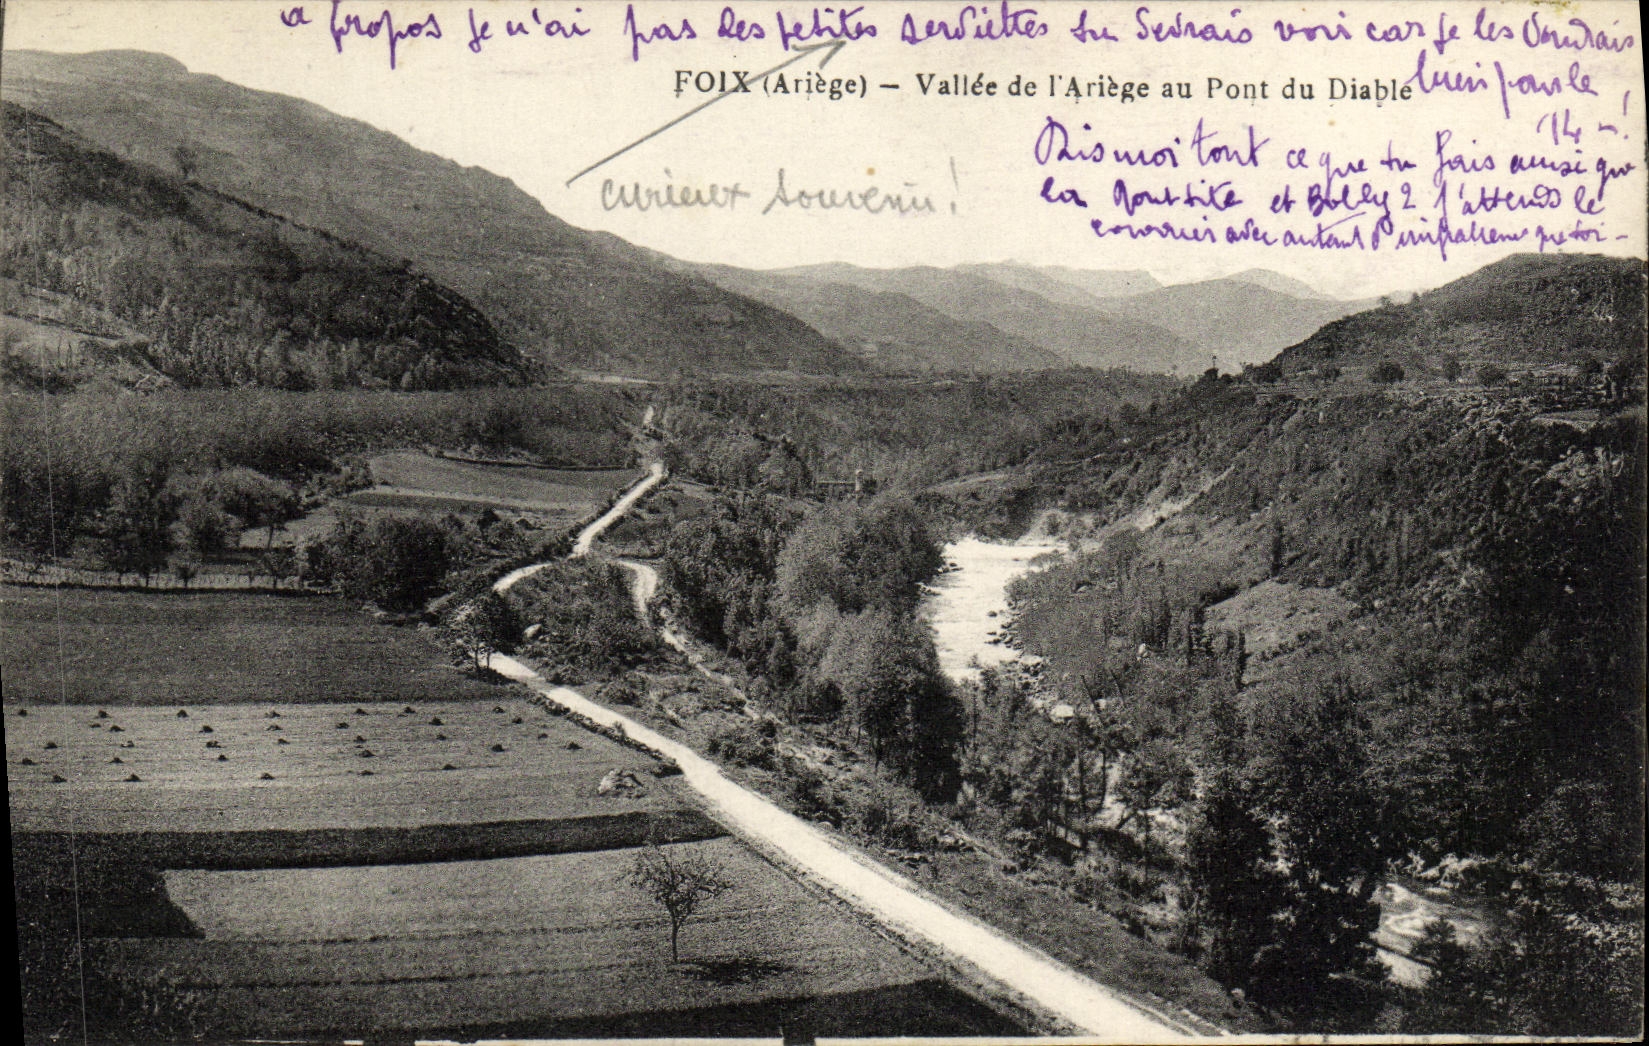 à propos je n'ai pas des petites serviettes tu devrais voir car je les voudrais
FOIX (Ariège) — Vallée de l'Ariège au Pont du Diable
bien pour le
14 - !
Dis moi tout ce que tu fais ainsi que
la et Bolly ? J'attends le
courrier avec autant d'impatience que toi -
curieux souvenir !